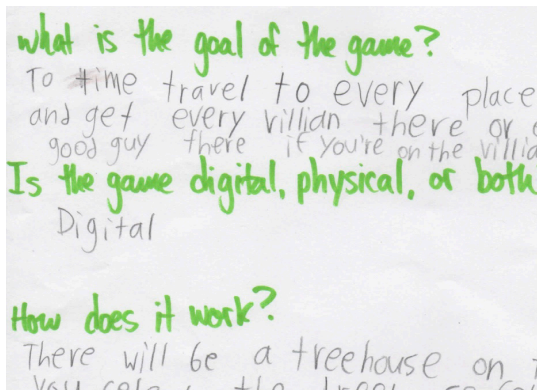 What is the goal of the game?
To time travel to every place
and get every villian there or
good guy there if you're on the
Is the game digital, physical, or both
Digital
How does it work?
There will be a treehouse on
you